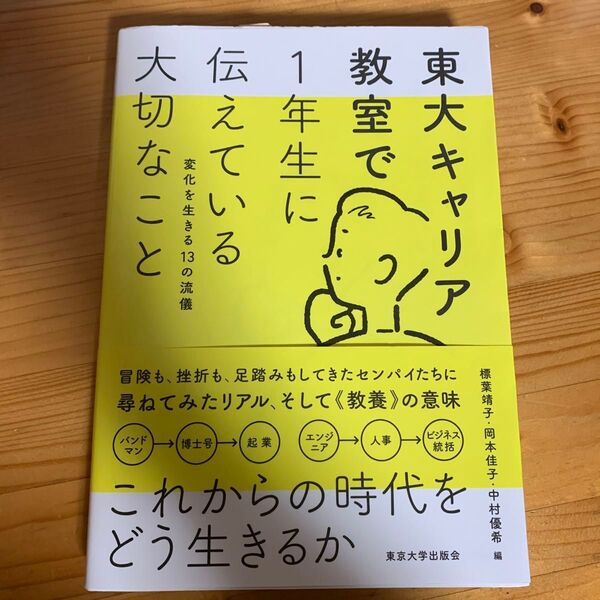 東大キャリア
教室で
1年生に
伝えている
大切なこと
変化を生きる13の流儀
冒険も、挫折も、足踏みもしてきたセンパイたちに
尋ねてみたリアル、そして《教養》の意味
バンド
マン
→
博士号
→
起業
エンジ
ニア
→
人事
→
ビジネス
統括
これからの時代を
どう生きるか
標葉靖子・岡本佳子・中村優希 編
東京大学出版会